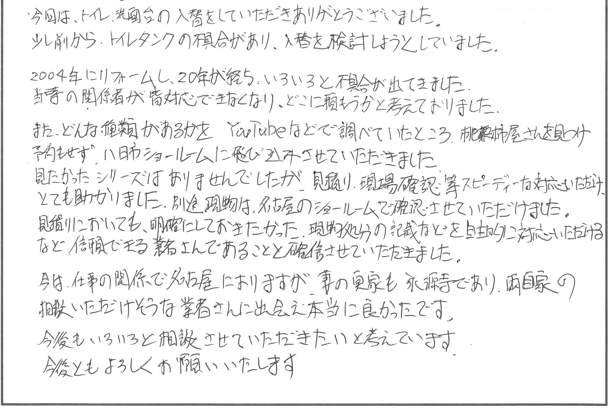 今回は、トイレ、洗面台の入替をしていただきありがとうございました。
少し前から、トイレタンクの不具合があり、入替を検討しようとしていました。
2004年にリフォームし、20年が経ち、いろいろと不具合が出てきました。
当時の関係者が皆対応できなくなり、どこに頼もうかと考えておりました。
また、どんな種類があるかを YouTubeなどで調べていたところ、屋さんを見つけ
予約もせず、八日市ショールームに飛び込みさせていただきました
見たかったシリーズはありませんでしたが、見積り、現場確認等スピーディーな対応いただけ、
とても助かりました。別途、現物は、名古屋のショールームで確認させていただけました。
見積りにおいても、明確にしておきたかった、現物処分の記載などを対応いただける
など信頼できる業者さんであることを確信させていただきました。
今は、仕事の関係で名古屋におりますが、妻の実家も永源寺であり、両自家の
相談いただけそうな業者さんに出会え本当に良かったです。
今後もいろいろと相談させていただきたいと考えています。
今後ともよろしくお願いいたします